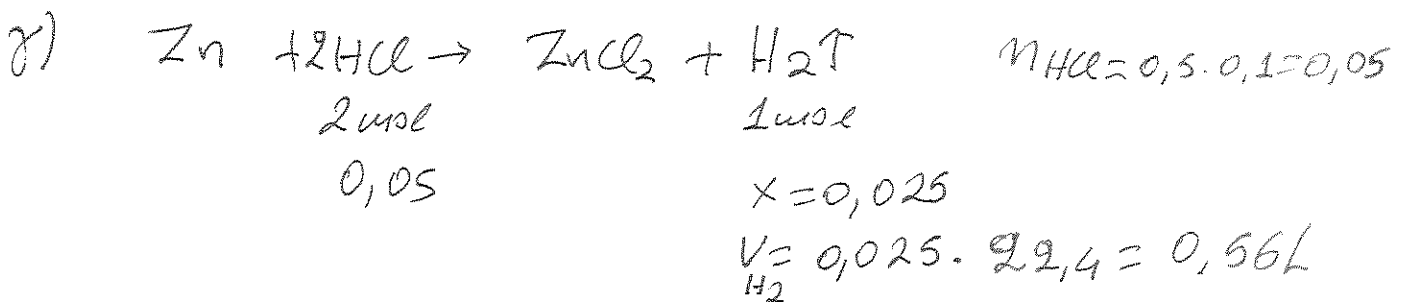 γ) Zn +2HCl → ZnCl₂ + H₂↑ n HCl = 0,5·0,1=0,05
2 mol 1 mol
0,05 x = 0,025
V H₂ = 0,025· 22,4 = 0,56L